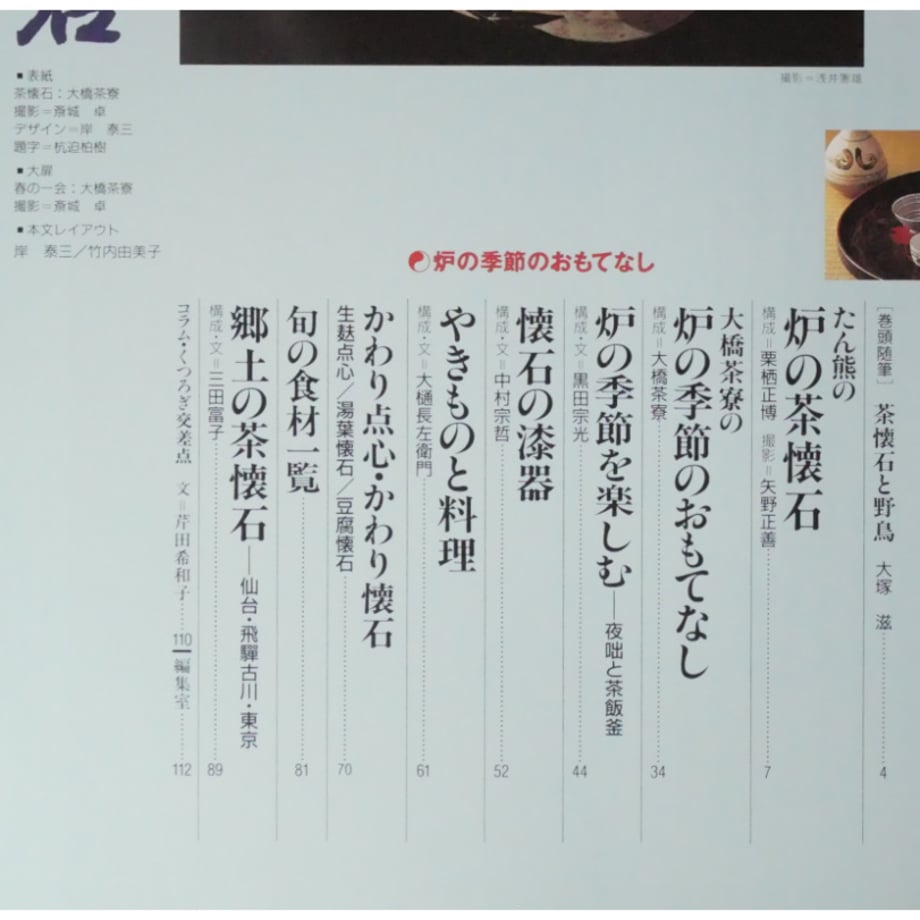 ■表紙
茶懐石：大橋茶寮
撮影＝斎城　卓
デザイン＝岸　泰三
題字＝杭迫柏樹
■大扉
春の一会：大橋茶寮
撮影＝斎城　卓
■本文レイアウト
岸　泰三／竹内由美子
撮影＝浅井憲雄
炉の季節のおもてなし
［巻頭随筆］　茶懐石と野鳥　大塚　滋……4
たん熊の
炉の茶懐石
構成＝栗栖正博　撮影＝矢野正善……7
大橋茶寮の
炉の季節のおもてなし
構成＝大橋茶寮……34
炉の季節を楽しむ——夜咄と茶飯釜
構成・文＝黒田宗光……44
懐石の漆器
構成・文＝中村宗哲……52
やきものと料理
構成・文＝大樋長左衛門……61
かわり点心・かわり懐石
生麸点心／湯葉懐石／豆腐懐石……70
旬の食材一覧……81
郷土の茶懐石——仙台・飛驒古川・東京
構成・文＝三田富子……89
コラム・くつろぎ交差点　文＝芹田希和子……110
編集室……112